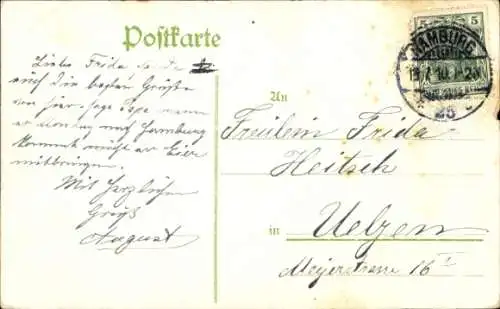 Postkarte
Liebe Frida
auch die besten Grüße
von hier. sage Papa wenn
er Montag nach Hamburg
kommt möchte er Eier
mitbringen.
Mit herzlichem
Gruß
August
An
Freilein Frida
Heitsch
in Uelzen
Meyerstrasse 16 I
5 5
HAMBURG